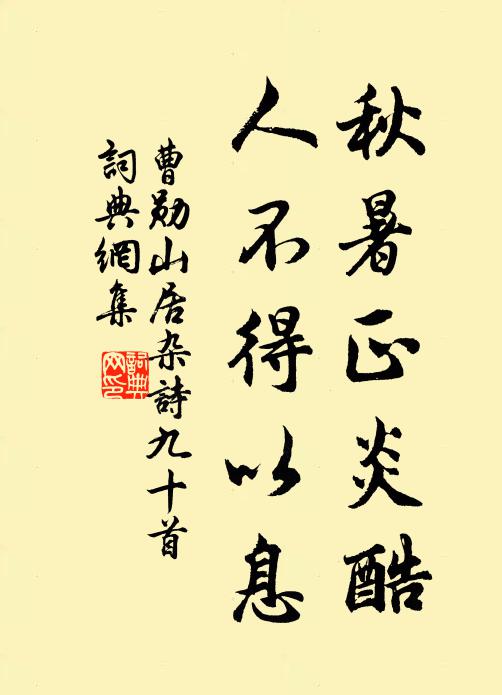 秋暑正炎酷
人不得以息
曹勋山居杂詩九十首
詞典網集
詞典
网印